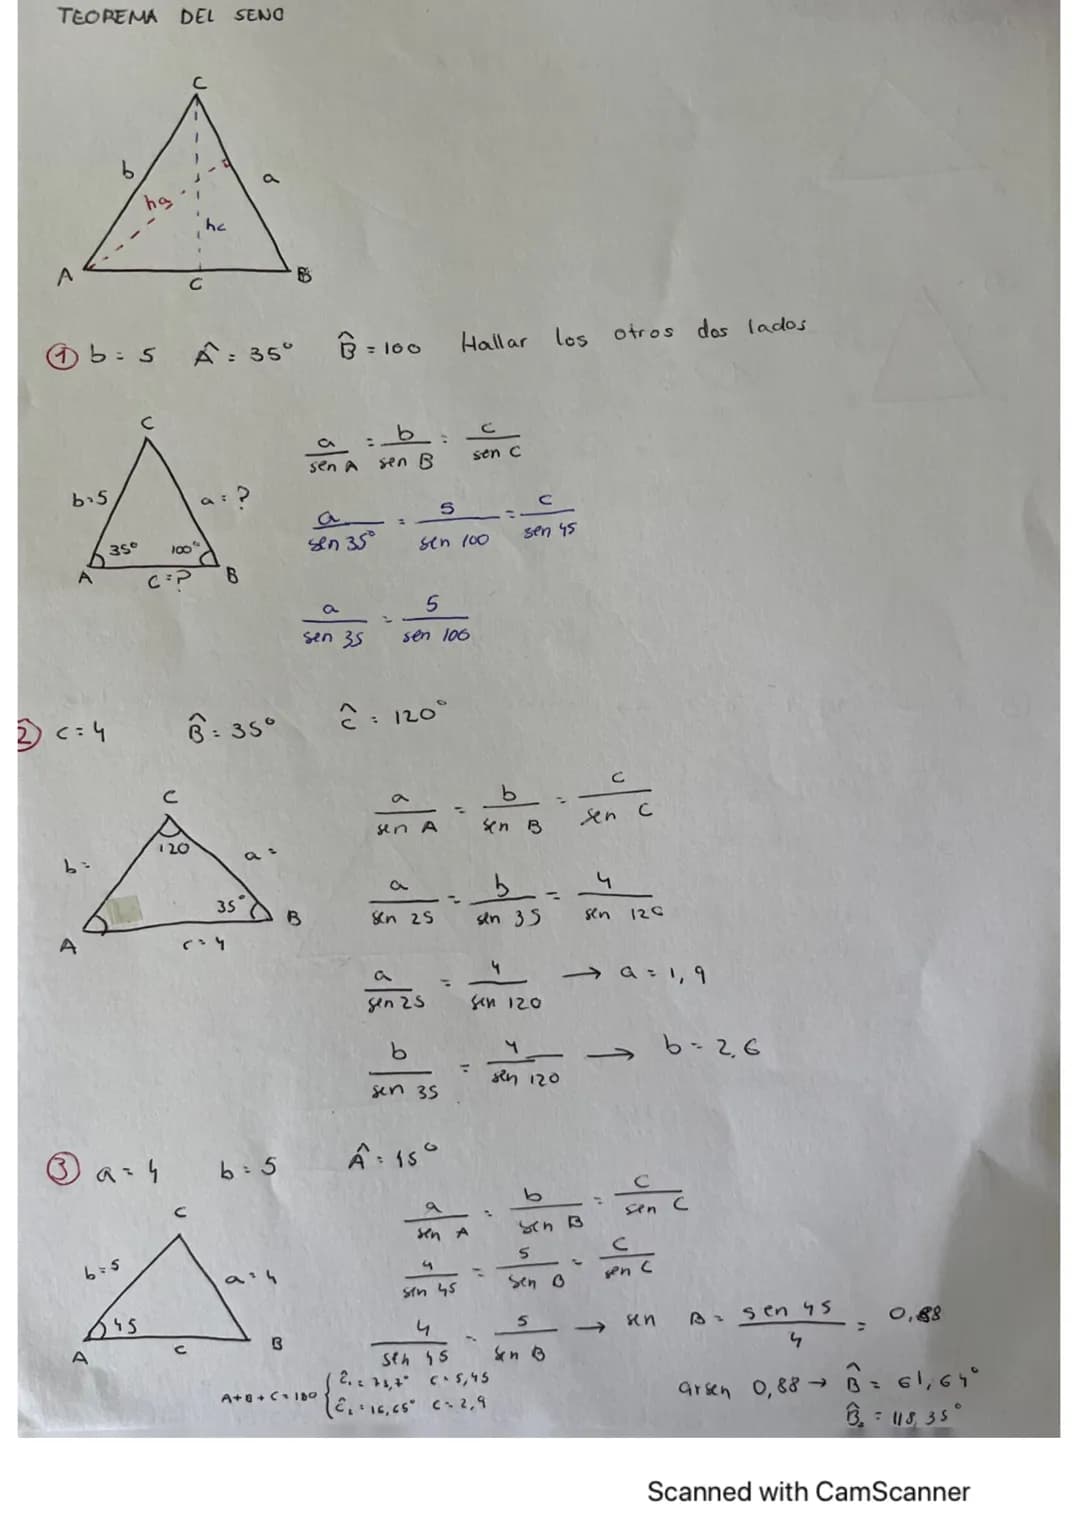 TEOREMA DEL SENO
C
b
a
ha
hc
A
C
B
① b = 5 Â = 35° B̂ = 100 Hallar los otros dos lados
C
b=5
a = ?
35° 100°
A
C = ?
B
a/sen A = b/sen B = c/sen C
a/sen 35° = 5/sen 100 = c/sen 45
a/sen 35 = 5/sen 100
2) c = 4 B̂ = 35° Ĉ = 120°
C
120
b =
a =
35°
A
c = 4
B
a/sen A = b/sen B = c/sen C
a/sen 25 = b/sen 35 = 4/sen 120
a/sen 25 = 4/sen 120 → a = 1,9
b/sen 35 = 4/sen 120 → b = 2,6
③ a = 4 b = 5 Â = 45°
C
b = 5
a = 4
45
A
C
B
a/sen A = b/sen B = c/sen C
4/sen 45 = 5/sen B = c/sen C
4/sen 45 = 5/sen B → sen B = sen 45/4 = 0,88
arsen 0,88 → B̂ = 61,64°
B̂₂ = 118,35°
A+B+C = 180 { Ĉ₁ = 73,7° c = 5,45
Ĉ₂ = 16,65° c = 2,9
Scanned with CamScanner